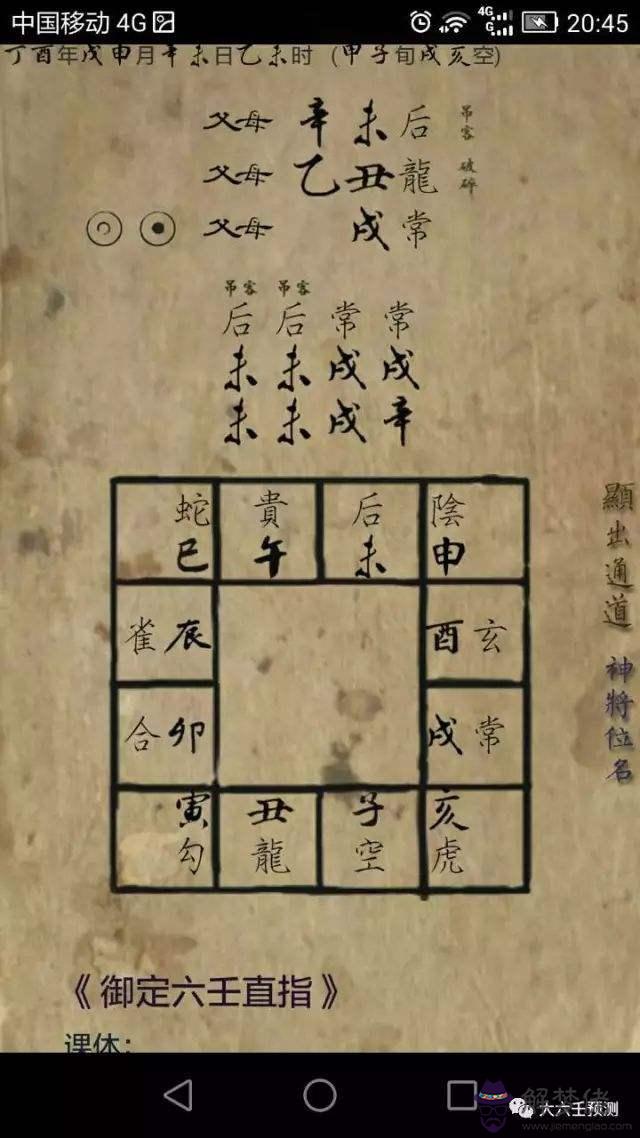 中国移动 4G
4G
G
20:45
丁酉年戊申月辛未日乙未时 (甲子旬戌亥空)
父母 辛未后 吊客
父母 乙丑龍 破碎
父母 戌常
吊客 吊客
后 后 常 常
未 未 戌 戌
未 未 戌 辛
蛇 貴 后 陰
巳 午 未 申
雀 辰 酉 玄
合 卯 戌 常
寅 丑 子 亥
勾 龍 空 虎
顯出通道 神將位名
《御定六壬直指》
课体:
大六壬预测
解梦佬
www.jiemenglao.com